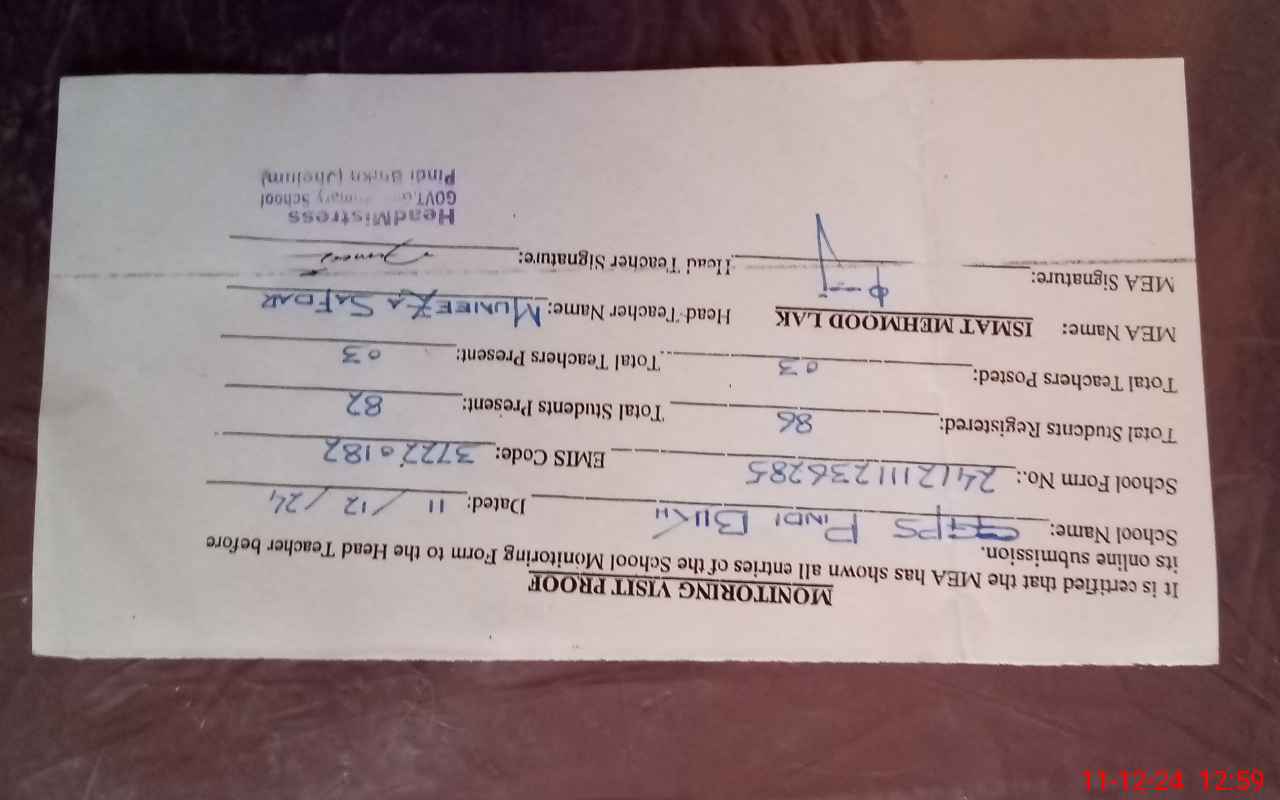 MONITORING VISIT PROOF
It is certified that the MEA has shown all entries of the School Monitoring Form to the Head Teacher before
its online submission.
School Name: GGPS PINDI Dated: 11/12/24
School Form No.: 2412111236285 EMIS Code: 37220182
Total Students Registered: 86 Total Students Present: 82
Total Teachers Posted: 03 Total Teachers Present: 03
MEA Name: ISMAT MEHMOOD LAK Head Teacher Name: MUNEEZA SAFDAR
MEA Signature: Head Teacher Signature:
HeadMistress
GOVT. School
Pindi (Jhelum)
11-12-24 12:59